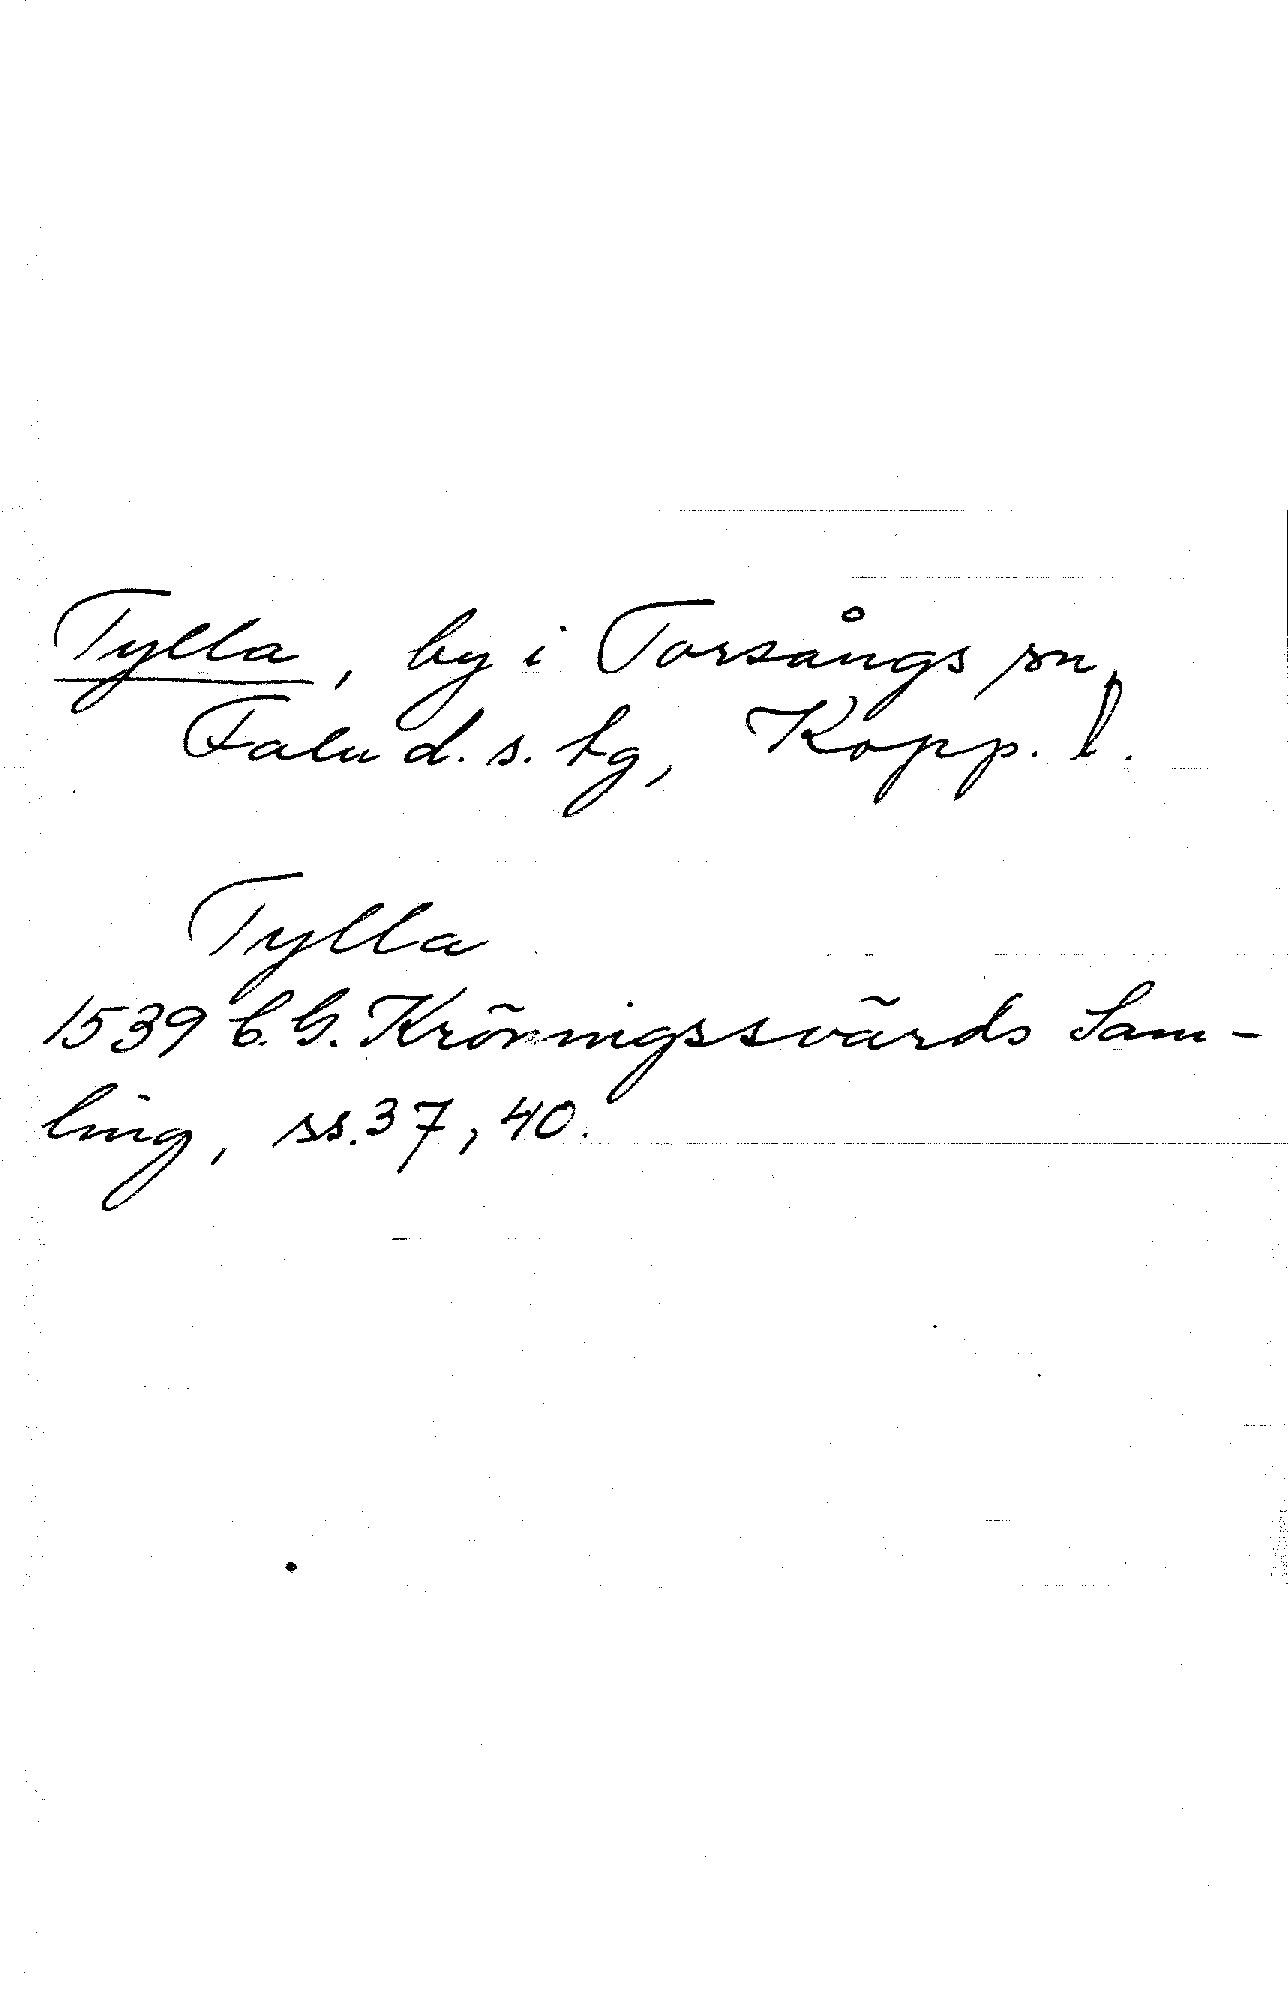 Tylla, by i Torsångs sn,
Falu d. s. tg, Kopp. l.
Tylla
1539 C. G. Kröningssvärds Sam-
ling, ss. 37, 40.